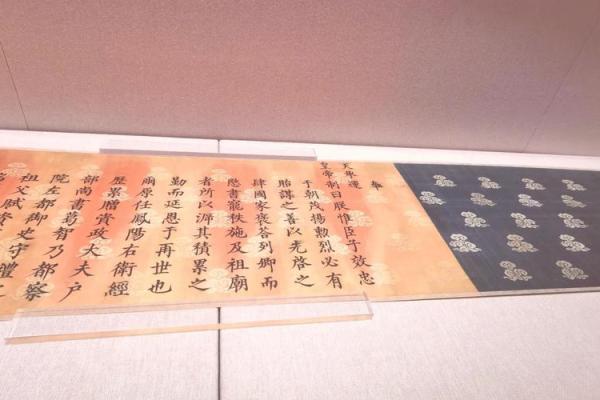 奉
天承運
皇帝制曰朕惟臣子效忠
于朝茂揚勳烈必有
貽謀之善以光啓之
肆國家褒答列卿而
寵秩施及祖廟
者所以源其積累之
勤而延恩于再世也
爾原任鳳陽右衛經
歷累贈資政大夫戶
部尚書葛智乃都察
院左都御史守禮之
祖父賦資